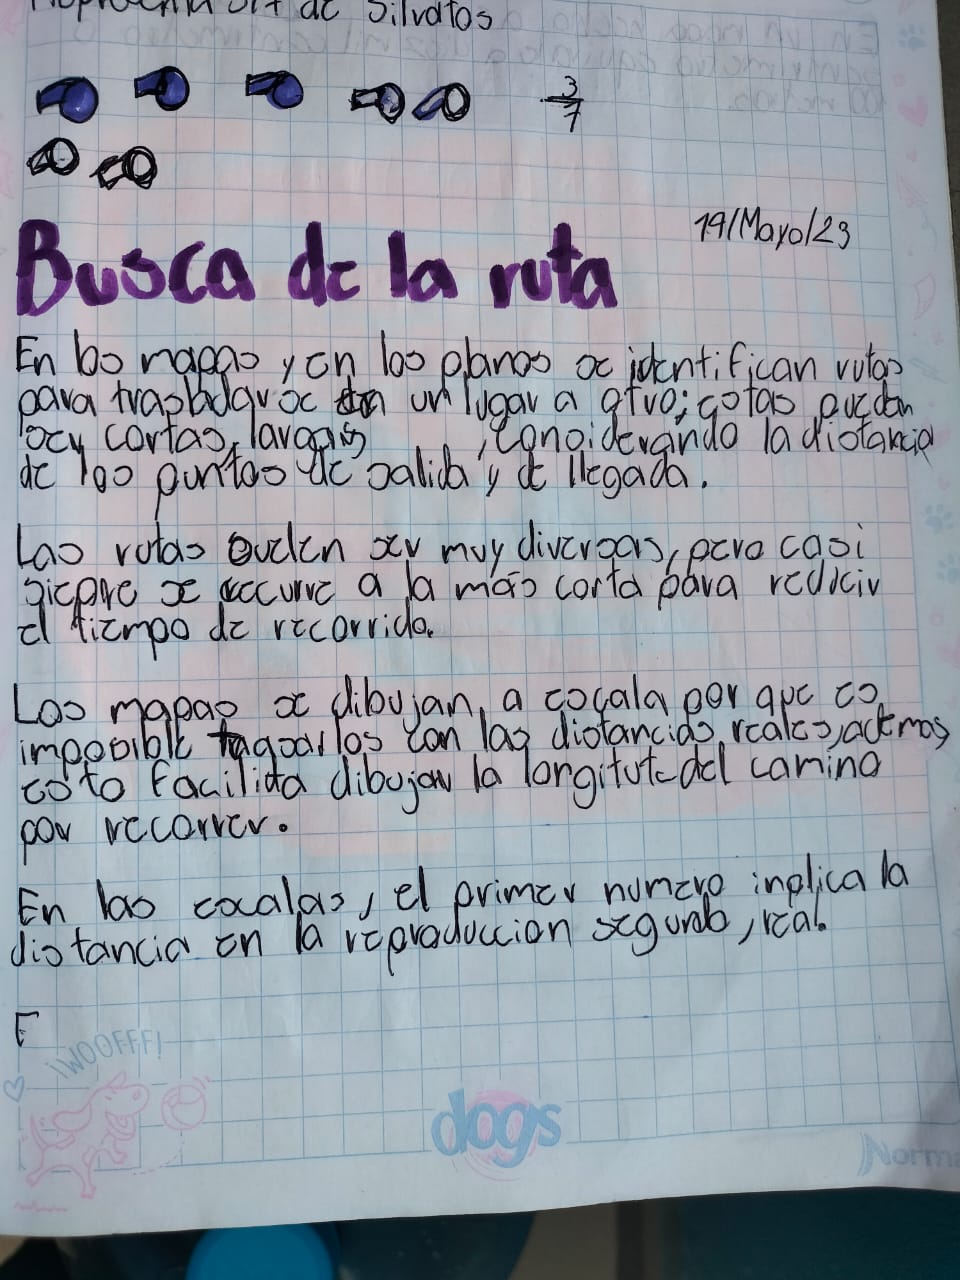 de Silvatos
3
7
19/Mayo/23
Busca de la ruta
En los mapas y en los planos se identifican rutas
para trasladarse en un lugar a otro; estas pueden
ser cortas, largas, considerando la distancia
de los puntos de salida y de llegada.
Las rutas suelen ser muy diversas, pero casi
siepre se recurre a la más corta para rediciv
el tiempo de recorrido.
Los mapas se dibujan, a escala por que es
imposible los con las distancias reales, adem as
esto facilida dibujar la longitute del camino
por recorrer.
En las escalas, el primer numero inplica la
distancia en la reproduccion segundo, real.
E
¡WOOFFF!
dogs
Norma